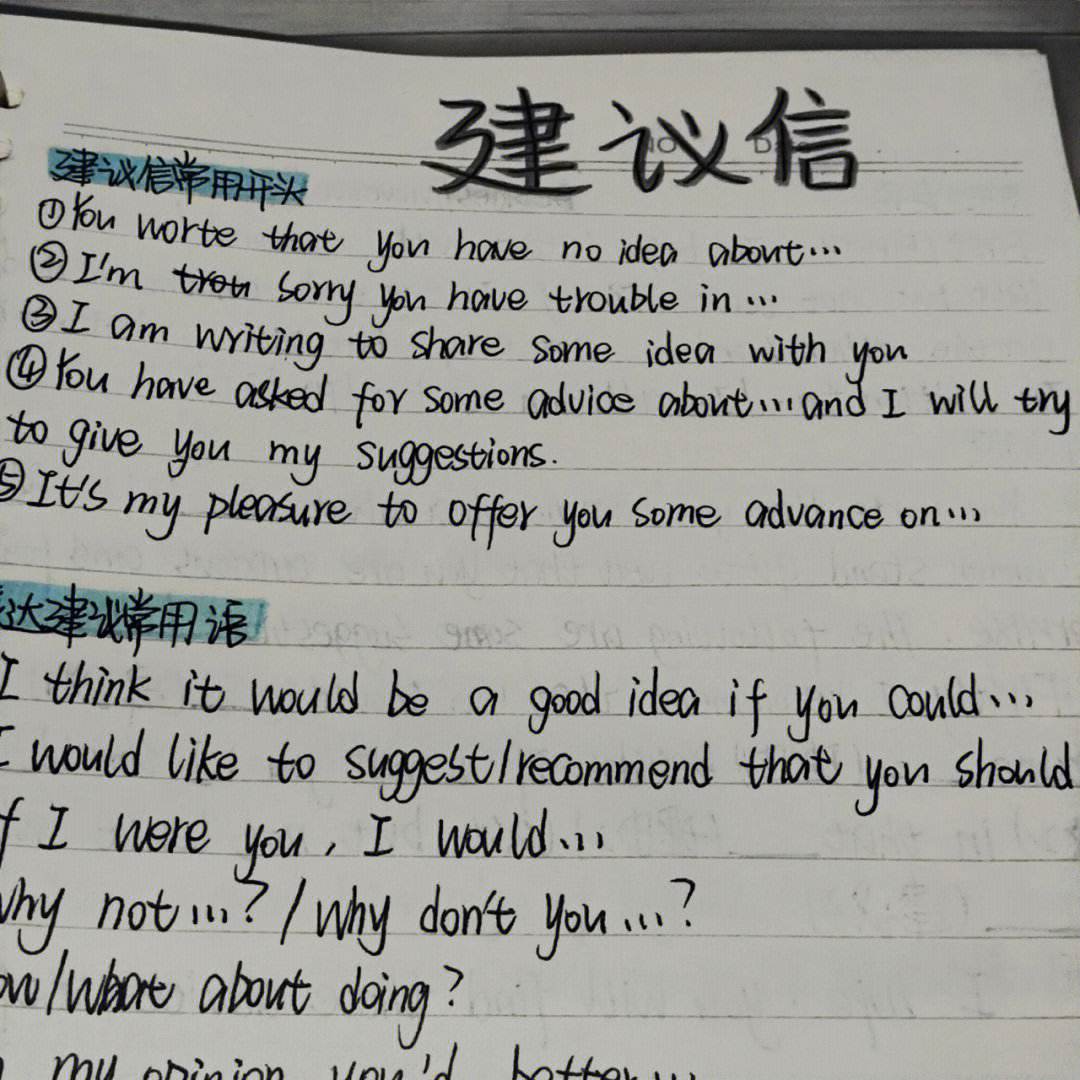 建议信
建议信常用开头
①You worte that you have no idea about…
②I'm trou sorry you have trouble in …
③I am writing to share some idea with you
④You have asked for some advice about…and I will try
to give you my suggestions.
⑤It's my pleasure to offer you some advance on…
达建议常用语
I think it would be a good idea if you could…
I would like to suggest/recommend that you should
f I were you, I would…
why not…?/why don't you…?
ow/what about doing?
my opinion you'd better…